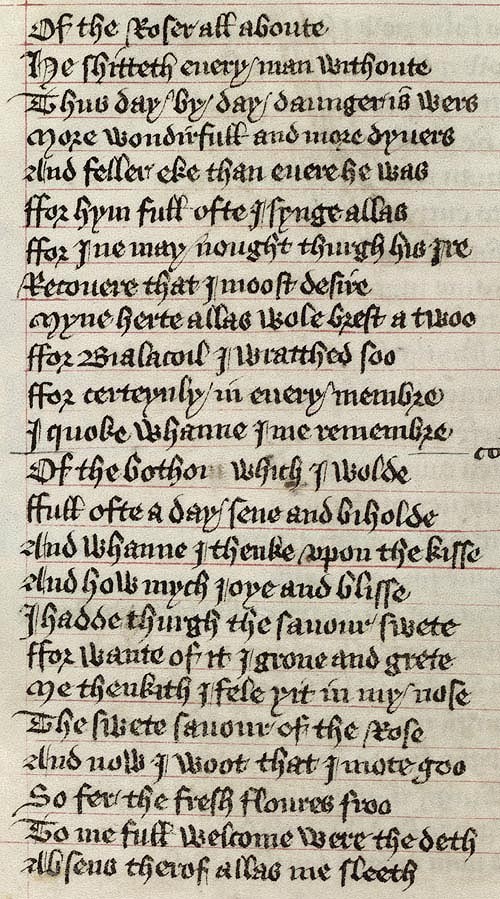 Of the Roser all aboute
He shitteth euery man withoute
Thus day by day daunger is wers
More wondirfull and more dyuers
And feller eke than euere he was
ffor hym full ofte I synge allas
ffor I ne may nought thurgh his Ire
Recouere that I moost desire
Myne herte allas wole brest a twoo
ffor Bialacoil I wratthed soo
ffor certeynly in euery membre
I quoke whanne I me remembre
Of the bothon which I wolde
ffull ofte a day sene and biholde
And whanne I thenke vpon the kisse
And how mych Ioye and blisse
I hadde thurgh the sauour swete
ffor wante of it I grone and grete
Me thenkith I fele yit in my nose
The swete sauour of the Rose
And now I woot that I mote goo
So fer the fresh floures froo
To me full welcome were the deth
Absens therof allas me sleeth